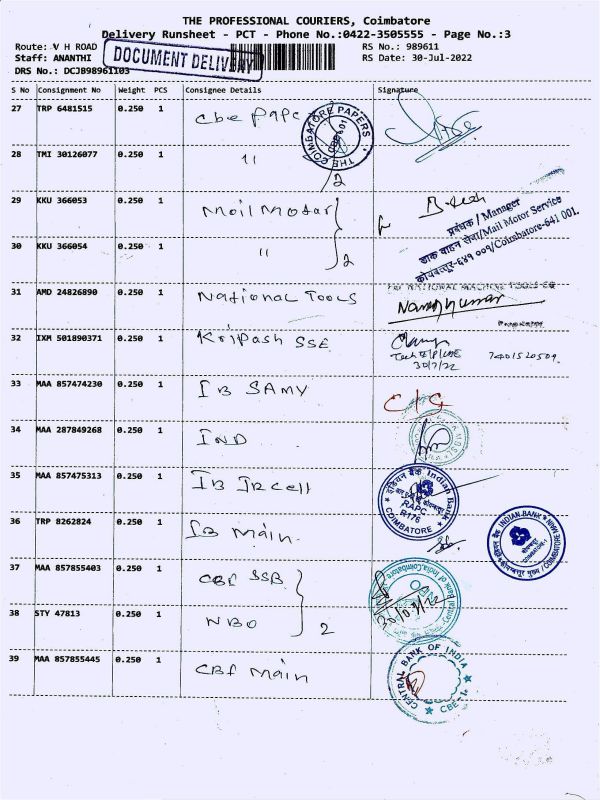 THE PROFESSIONAL COURIERS, Coimbatore
Delivery Runsheet - PCT - Phone No.:0422-3505555 - Page No.:3
Route: V H ROAD RS No.: 989611
Staff: ANANTHI DOCUMENT DELIVERY RS Date: 30-Jul-2022
DRS No.: DCJB98961103
S No Consignment No Weight PCS Consignee Details Signature
27 TRP 6481515 0.250 1 Cbe Pape
THE COIMBATORE PAPERS
28 TMI 30126077 0.250 1 11
2
29 KKU 366053 0.250 1 Moil Motar
प्रबंधक / Manager
डाक वाहन सेवा/Mail Motor Service
कोयंबत्तूर-६४१ ००१/Coimbatore-641 001.
30 KKU 366054 0.250 1 11
2
31 AMD 24826890 0.250 1 National Tools
For NATIONAL MACHINE TOOLS
32 IXM 501890371 0.250 1 Kripash SSE
30/7/22
33 MAA 857474230 0.250 1 IB SAMY
34 MAA 287849268 0.250 1 IND
35 MAA 857475313 0.250 1 IB IR cell
इंडियन बैंक Indian Bank
RAPC
COIMBATORE
36 TRP 8262824 0.250 1 IB Main.
INDIAN BANK
COIMBATORE MAIN
37 MAA 857855403 0.250 1 CBE SSB
Central Bank of India, Coimbatore
30/07/22
38 STY 47813 0.250 1 NBO
2
39 MAA 857855445 0.250 1 CBE Main
CENTRAL BANK OF INDIA
CBE-1